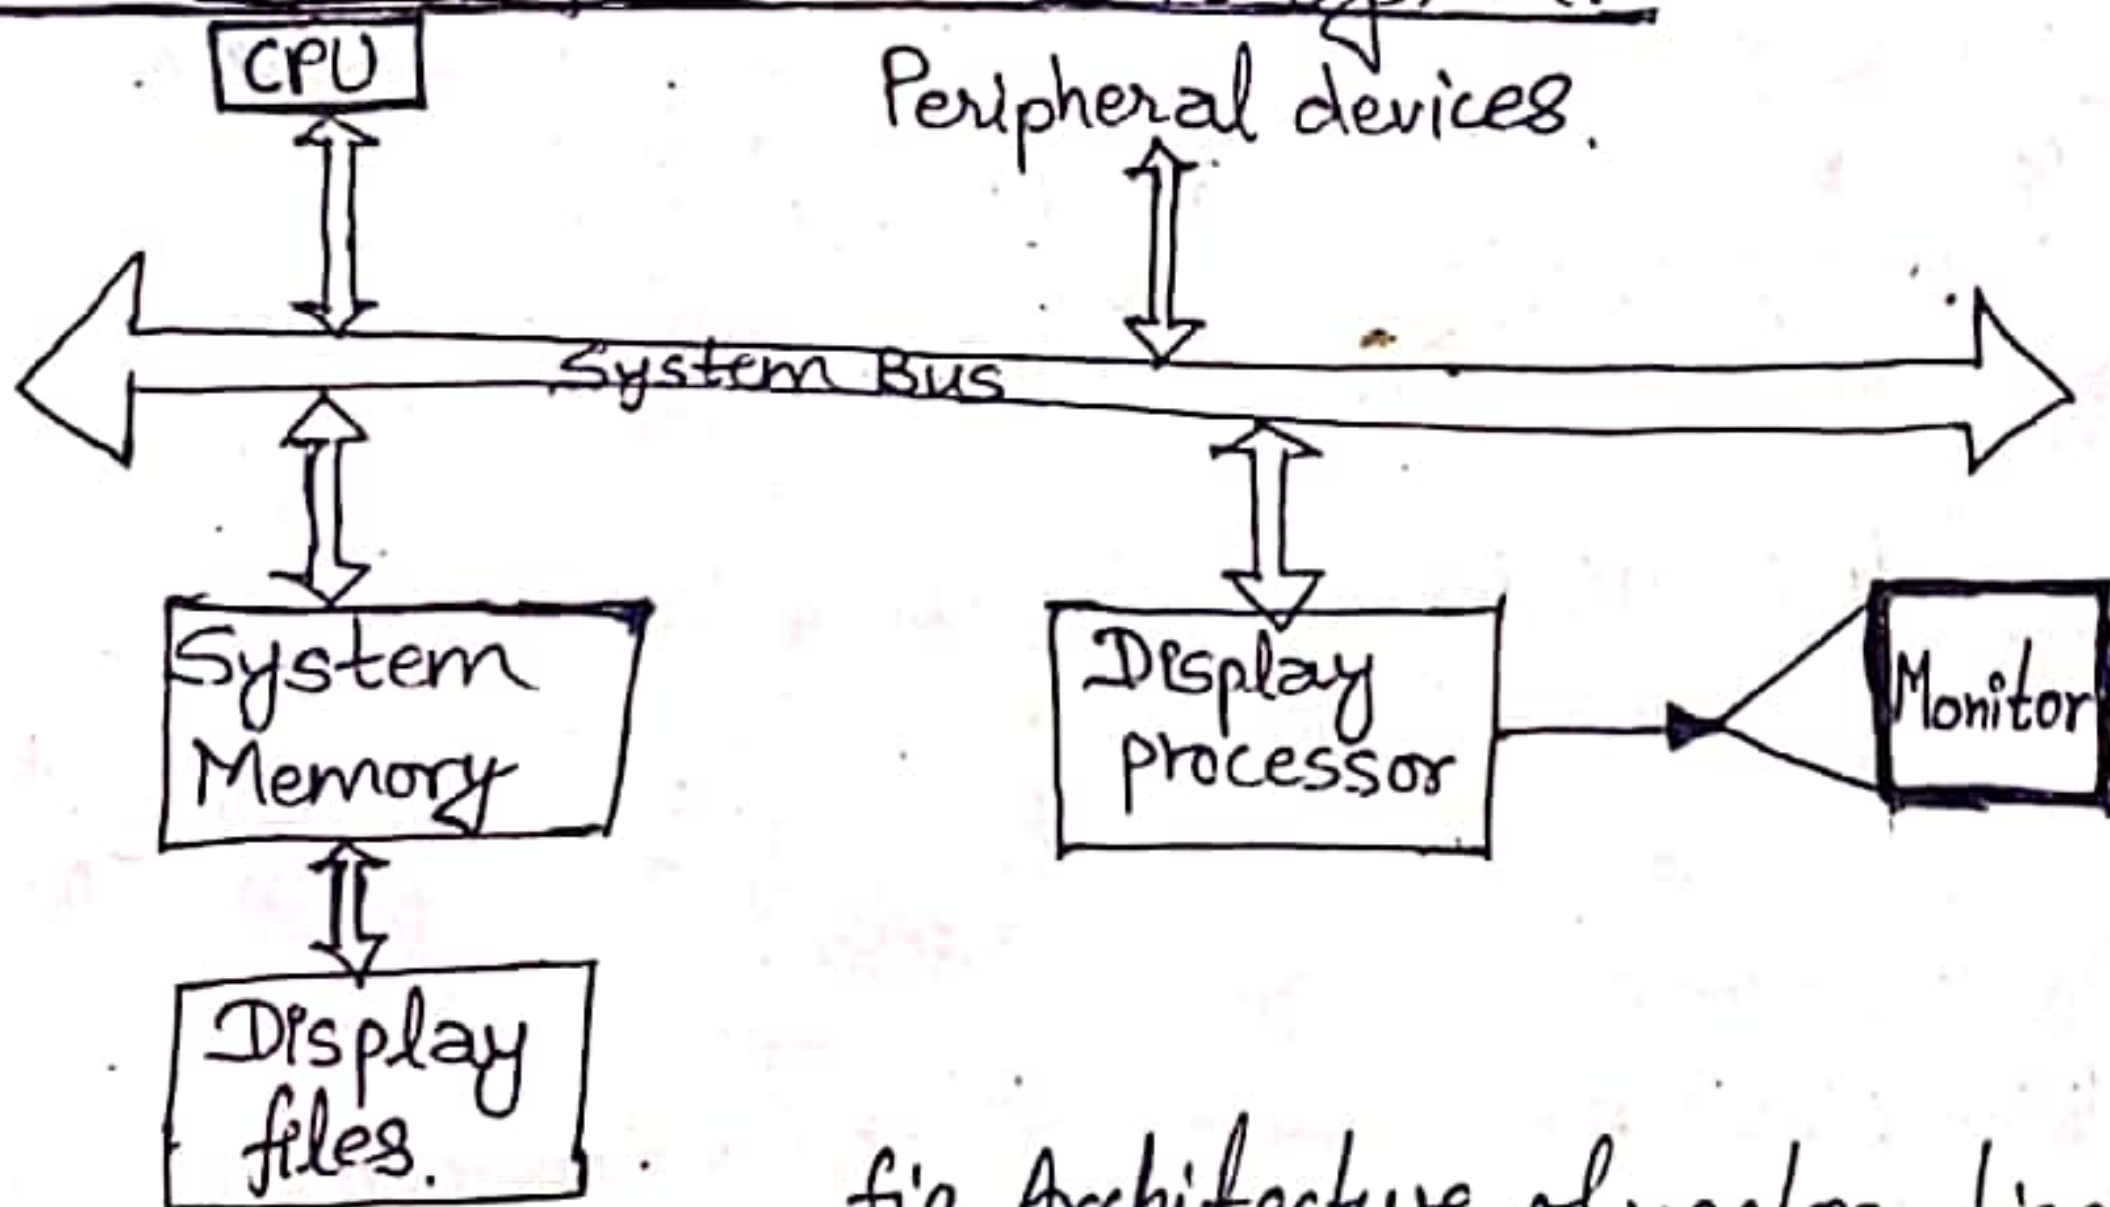 CPU
Peripheral devices.
System Bus
System
Memory
Display
processor
Monitor
Display
files.
fig Architecture of vector